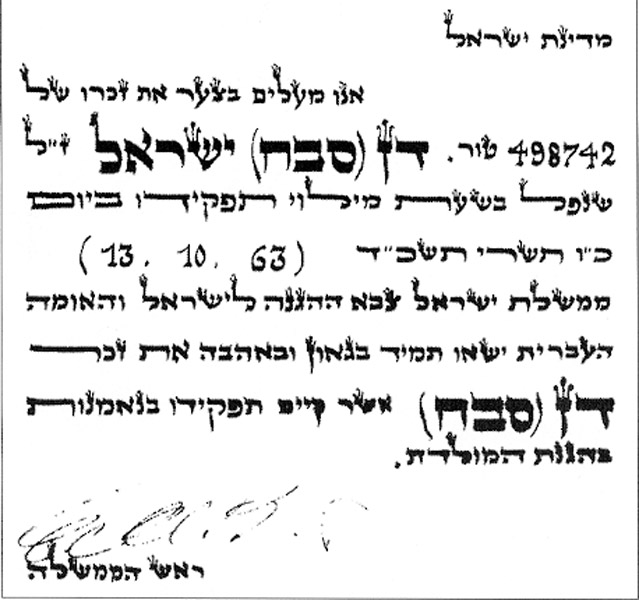 מדינת ישראל
אנו מעלים בצער את זכרו של
498742 טור. דן (סבח) ישראל ז״ל
שנפל בשעת מילוי תפקידו ביום
כ״ו תשרי תשכ״ד (13. 10. 63)
ממשלת ישראל צבא ההגנה לישראל והאומה
העברית ישאו תמיד בגאון ובאהבה את זכר
דן (סבח) אשר קיים תפקידו בנאמנות
בהגנת המולדת.
ראש הממשלה